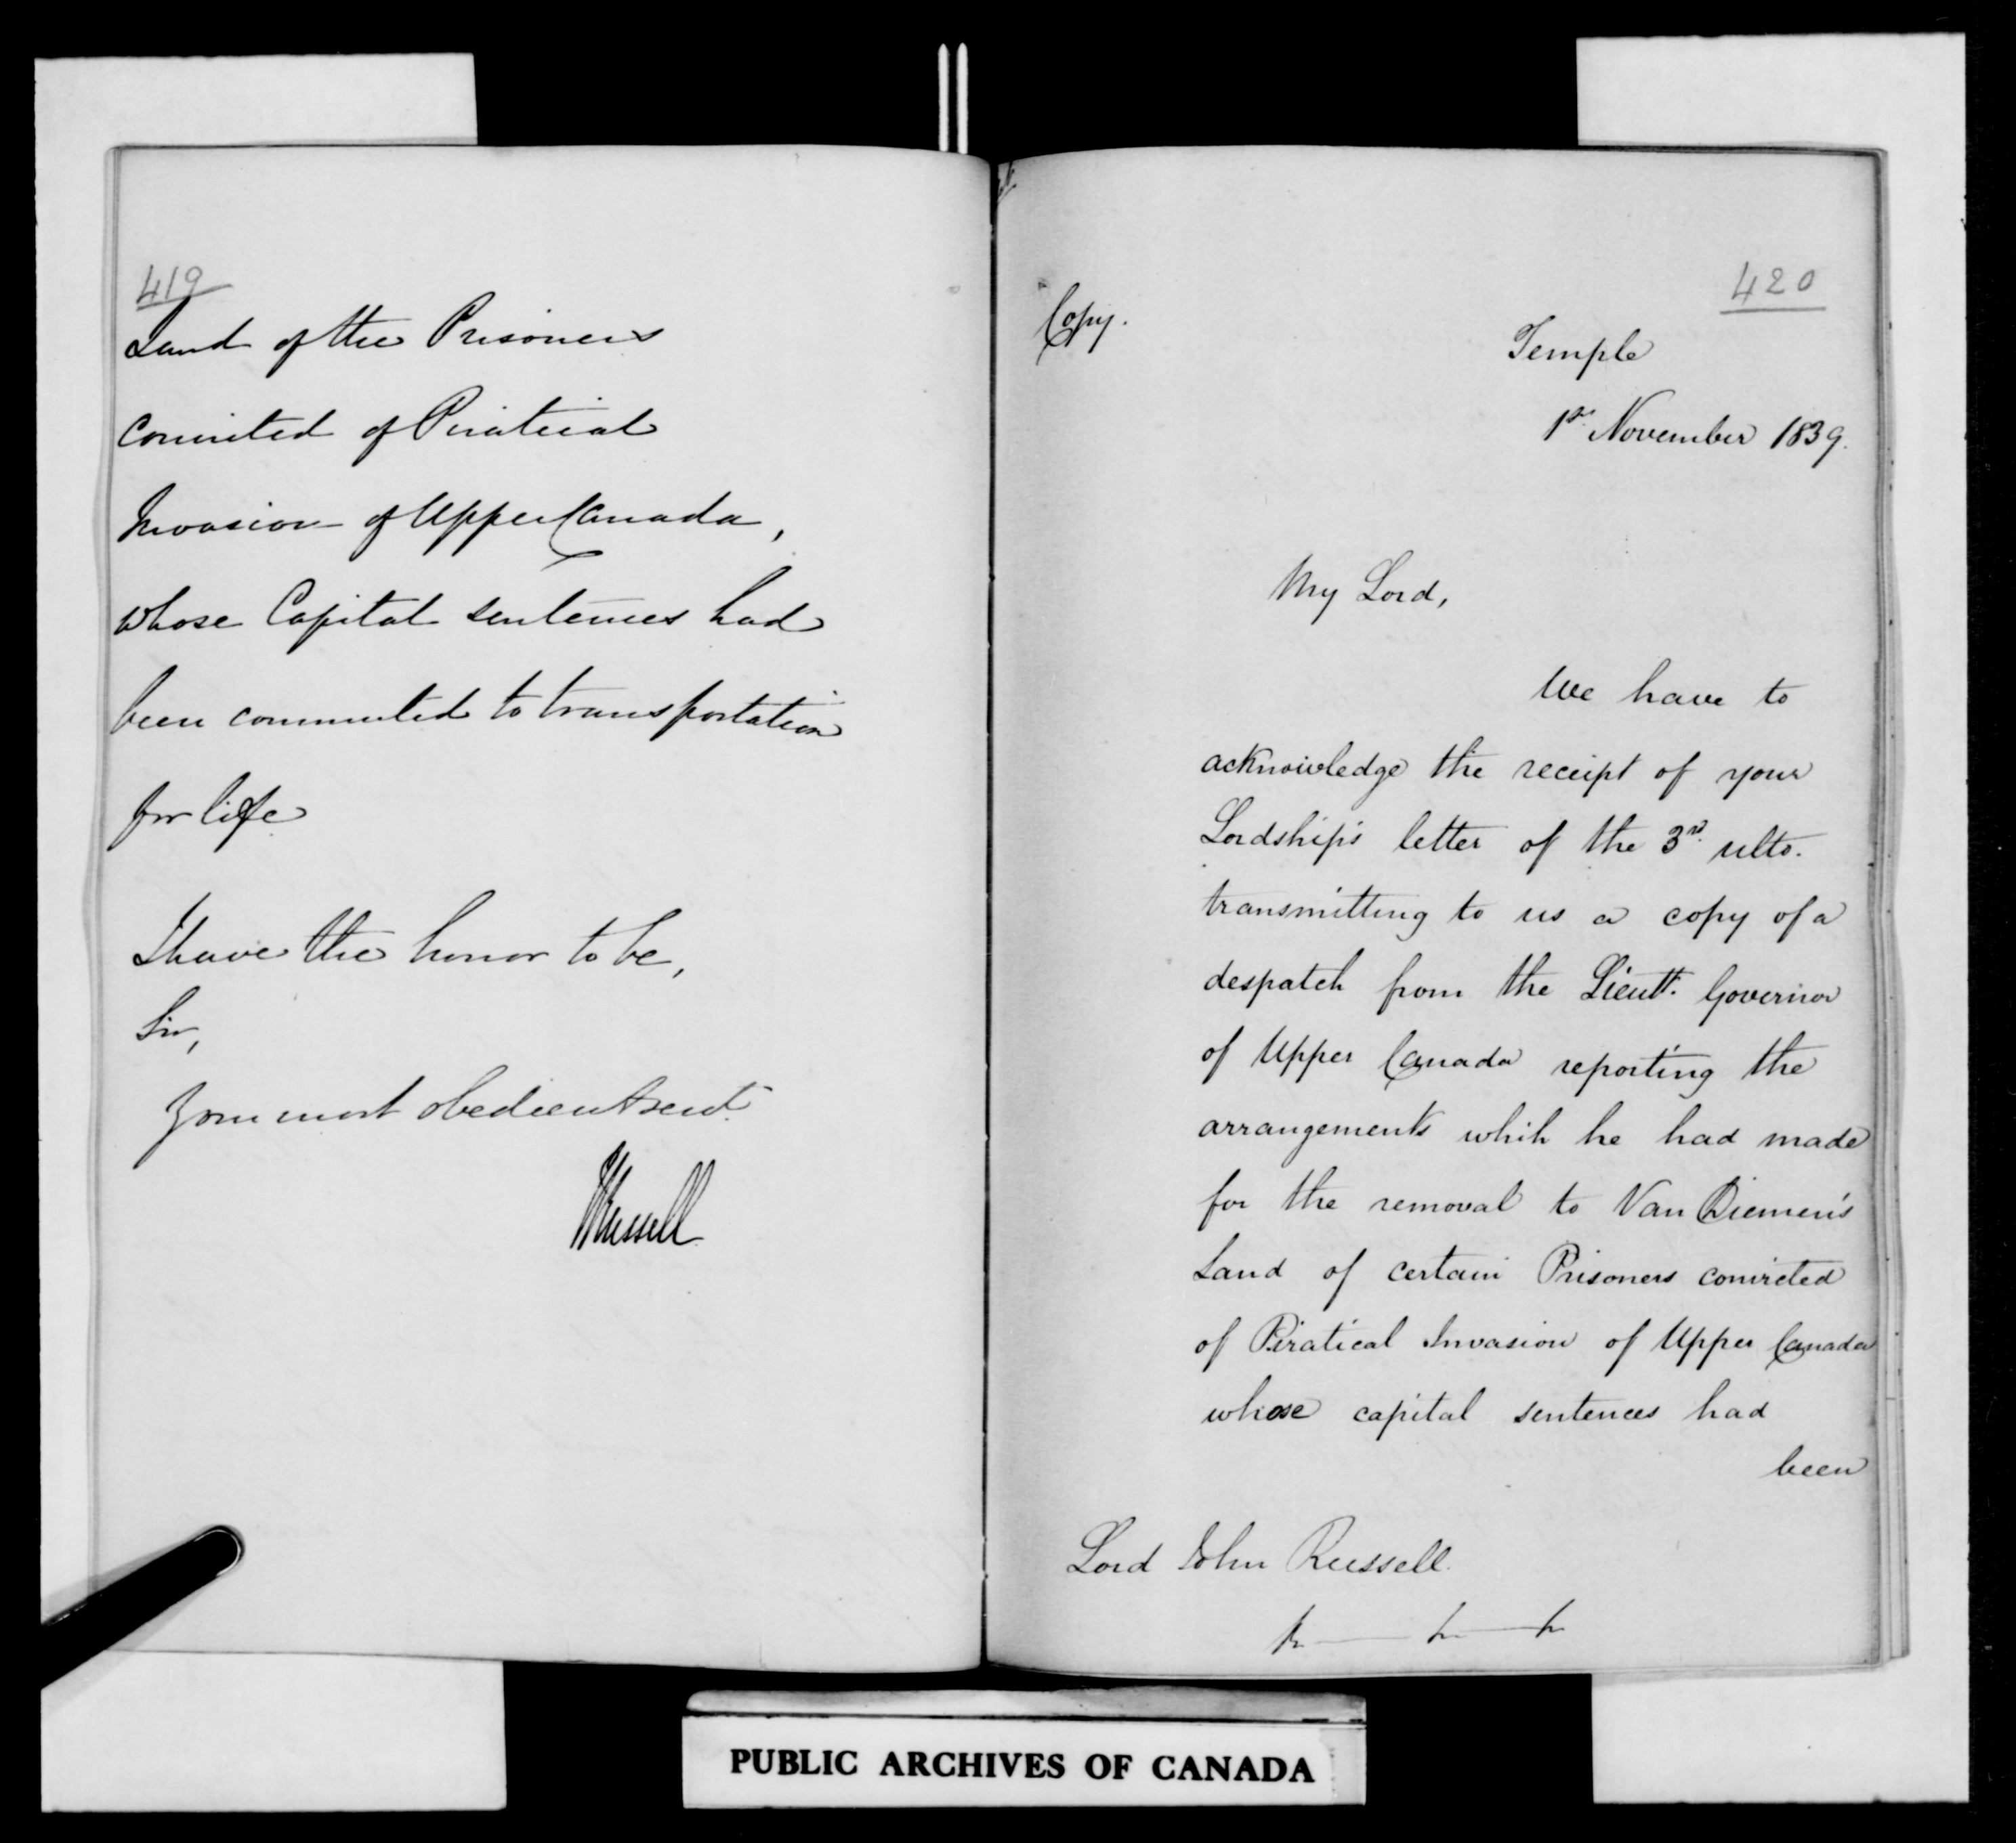 419
Land of the Prisoners
convicted of Piratical
Invasion of Upper Canada,
whose Capital sentences had
been commuted to transportation
for life
I have the honor to be,
Sir,
Your most obedient servt.
J Russell
420
Copy.
Temple
1st. November 1839.
My Lord,
We have to
acknowledge the receipt of your
Lordship's letter of the 3rd. ulto.
transmitting to us a copy of a
despatch from the Lieutt. Governor
of Upper Canada reporting the
arrangements which he had made
for the removal to Van Diemen's
Land of certain Prisoners convicted
of Piratical Invasion of Upper Canada
whose capital sentences had
been
Lord John Russell.
PUBLIC ARCHIVES OF CANADA